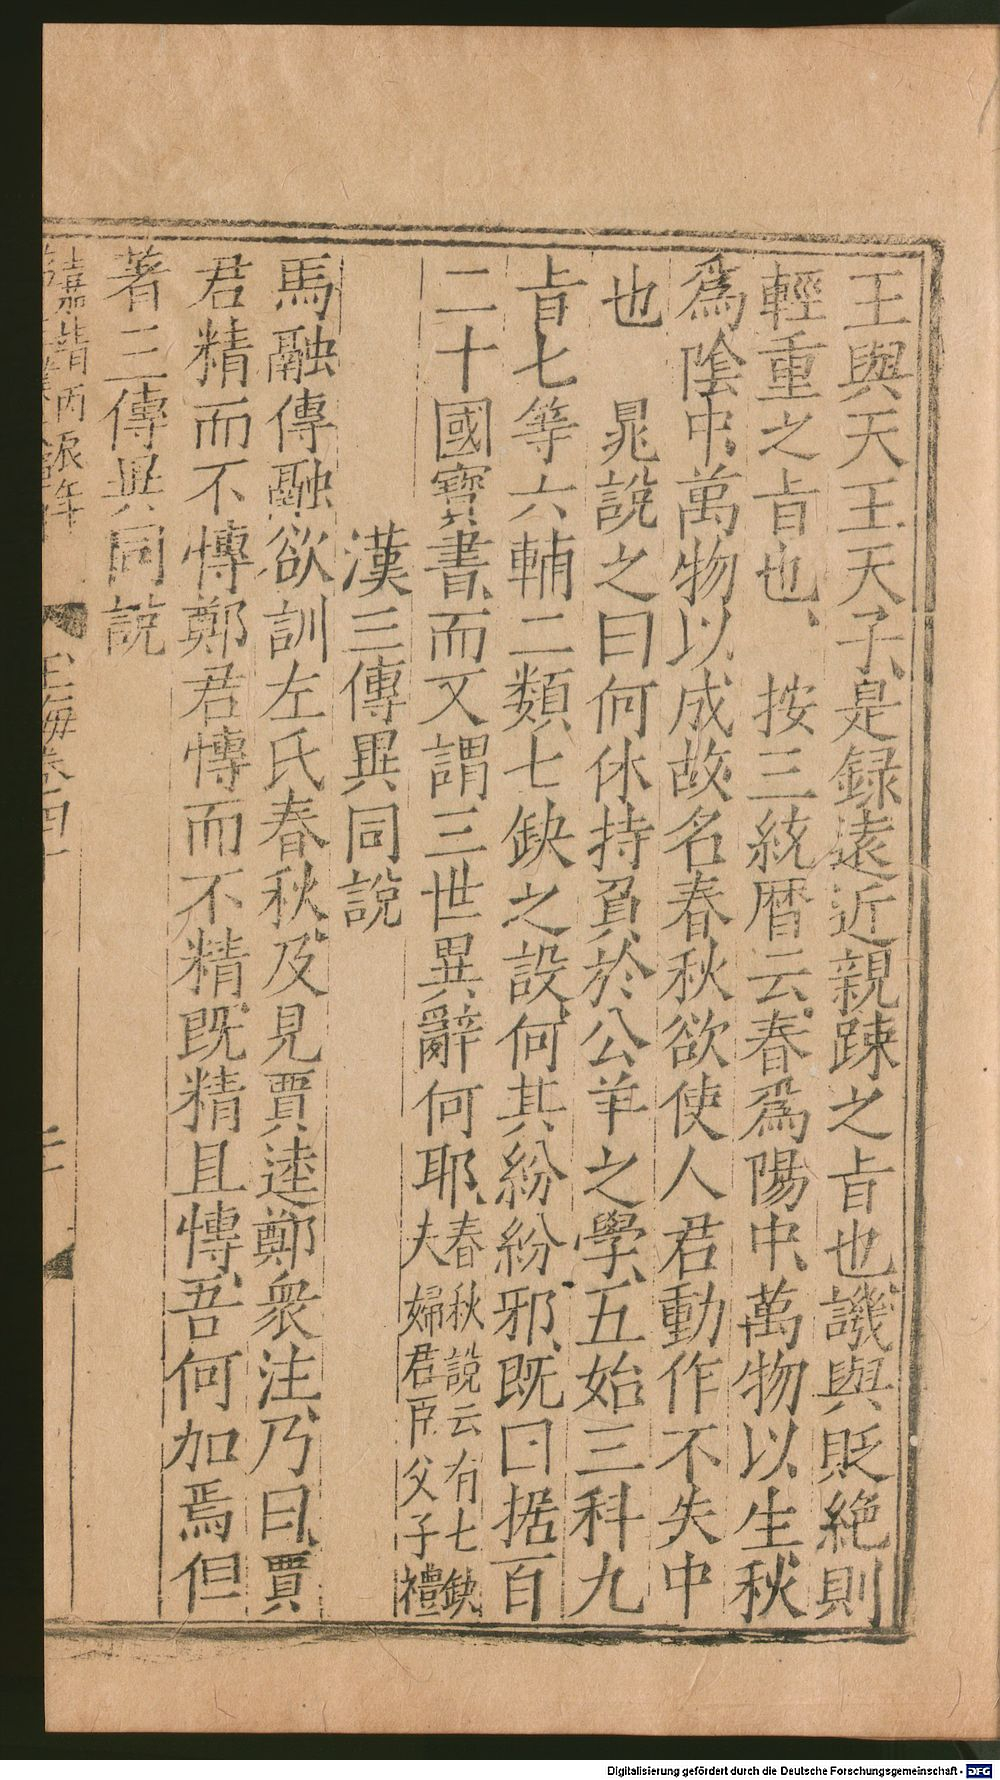 王與天王天子是録遠近親踈之㫖也譏與貶絶則
輕重之㫖也、 按三統曆云春爲陽中、萬物以生秋
爲陰中、萬物以成故名春秋欲使人君動作不失中
也 晁說之曰何休持負於公羊之學、五始三科九
㫖七等六輔二類七缺之設、何其紛紛邪、既曰据百
二十國寶書、而又謂三世異辭何耶、春秋說云有七缺
夫婦君臣父子禮
漢三傳異同說
馬融傳融欲訓左氏春秋、及見賈逵鄭衆注、乃曰、賈
君精而不愽鄭君愽而不精、既精且愽、吾何加焉但
著三傳異同說
嘉靖丙辰年
玉海卷四十
Digitalisierung gefördert durch die Deutsche Forschungsgemeinschaft - DFG